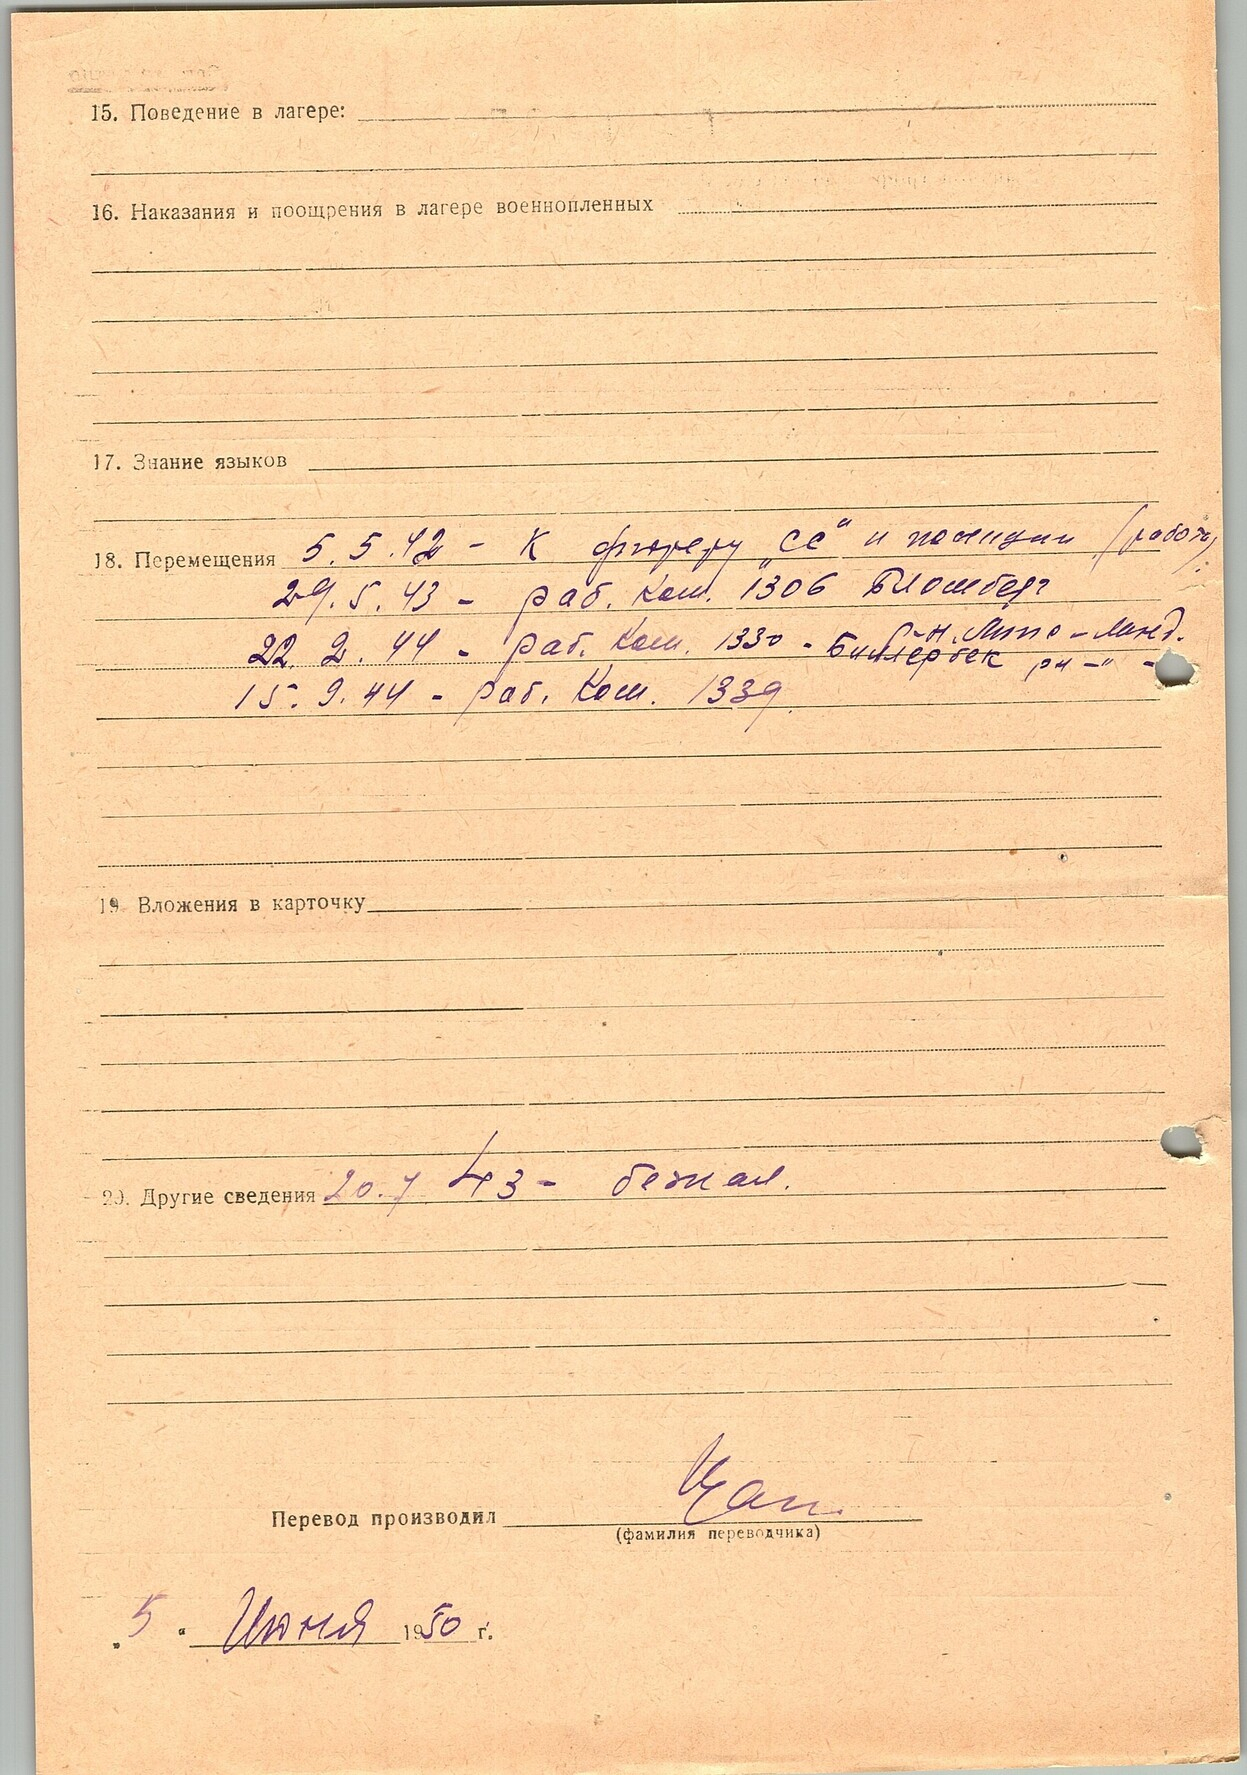 15. Поведение в лагере:
16. Наказания и поощрения в лагере военнопленных
17. Знание языков
18. Перемещения 5.5.42 - К фюреру „СС“ и полиции (работа)
29.5.43 - раб. Ком. 1306 Бломберг
р-н. Липе-Ланд.
22.2.44 - раб. Ком. 1330 - Биллербек рн -"-
15.9.44 - раб. Ком. 1339
19. Вложения в карточку
20. Другие сведения 20.7 43 - бежал.
Перевод производил
(фамилия переводчика)
„5“ Июня 1950 г.